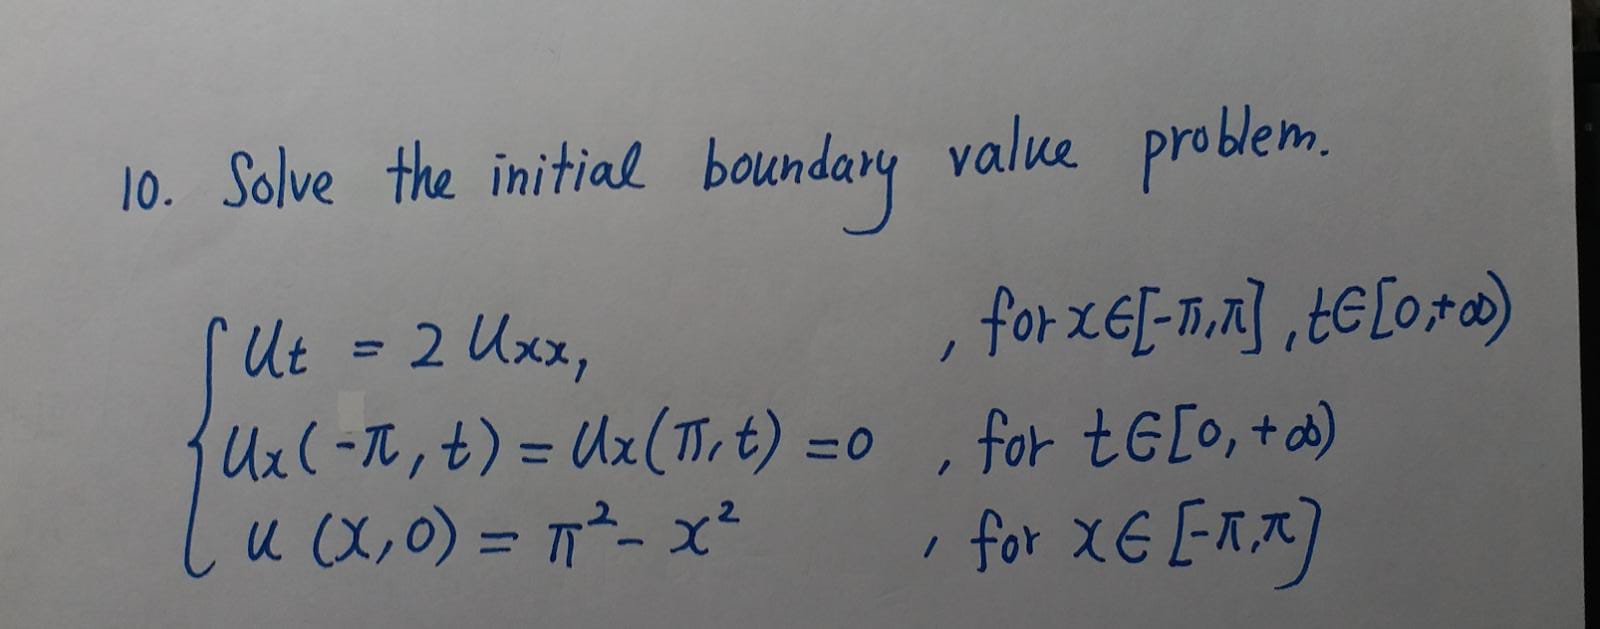 10. Solve the initial boundary value problem.
Ut = 2 Uxx, , for x∈[-π,π], t∈[0,+∞)
Ux(-π,t) = Ux(π,t) = 0 , for t∈[0,+∞)
u (x,0) = π² - x² , for x∈[-π,π]